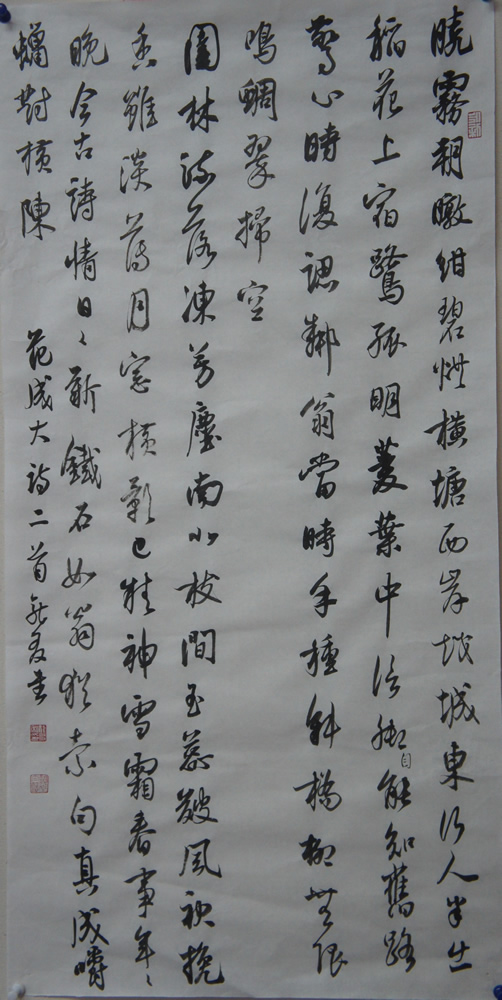 曉霧朝暾紺碧烘橫塘西岸越城東行人半出
稻花上宿鷺孤明菱葉中信腳自能知舊路
驚心時復認鄰翁當時手種斜橋柳無限
鳴蜩翠掃空
園林落凍芳塵南北枝間玉蕊皴風袂挽
香雖淡薄月窗橫影已精神雪霜春事年〻
晚今古詩情日〻新鐵石如翁猶索句真成嚼
蠟對橫陳
范成大詩二首書